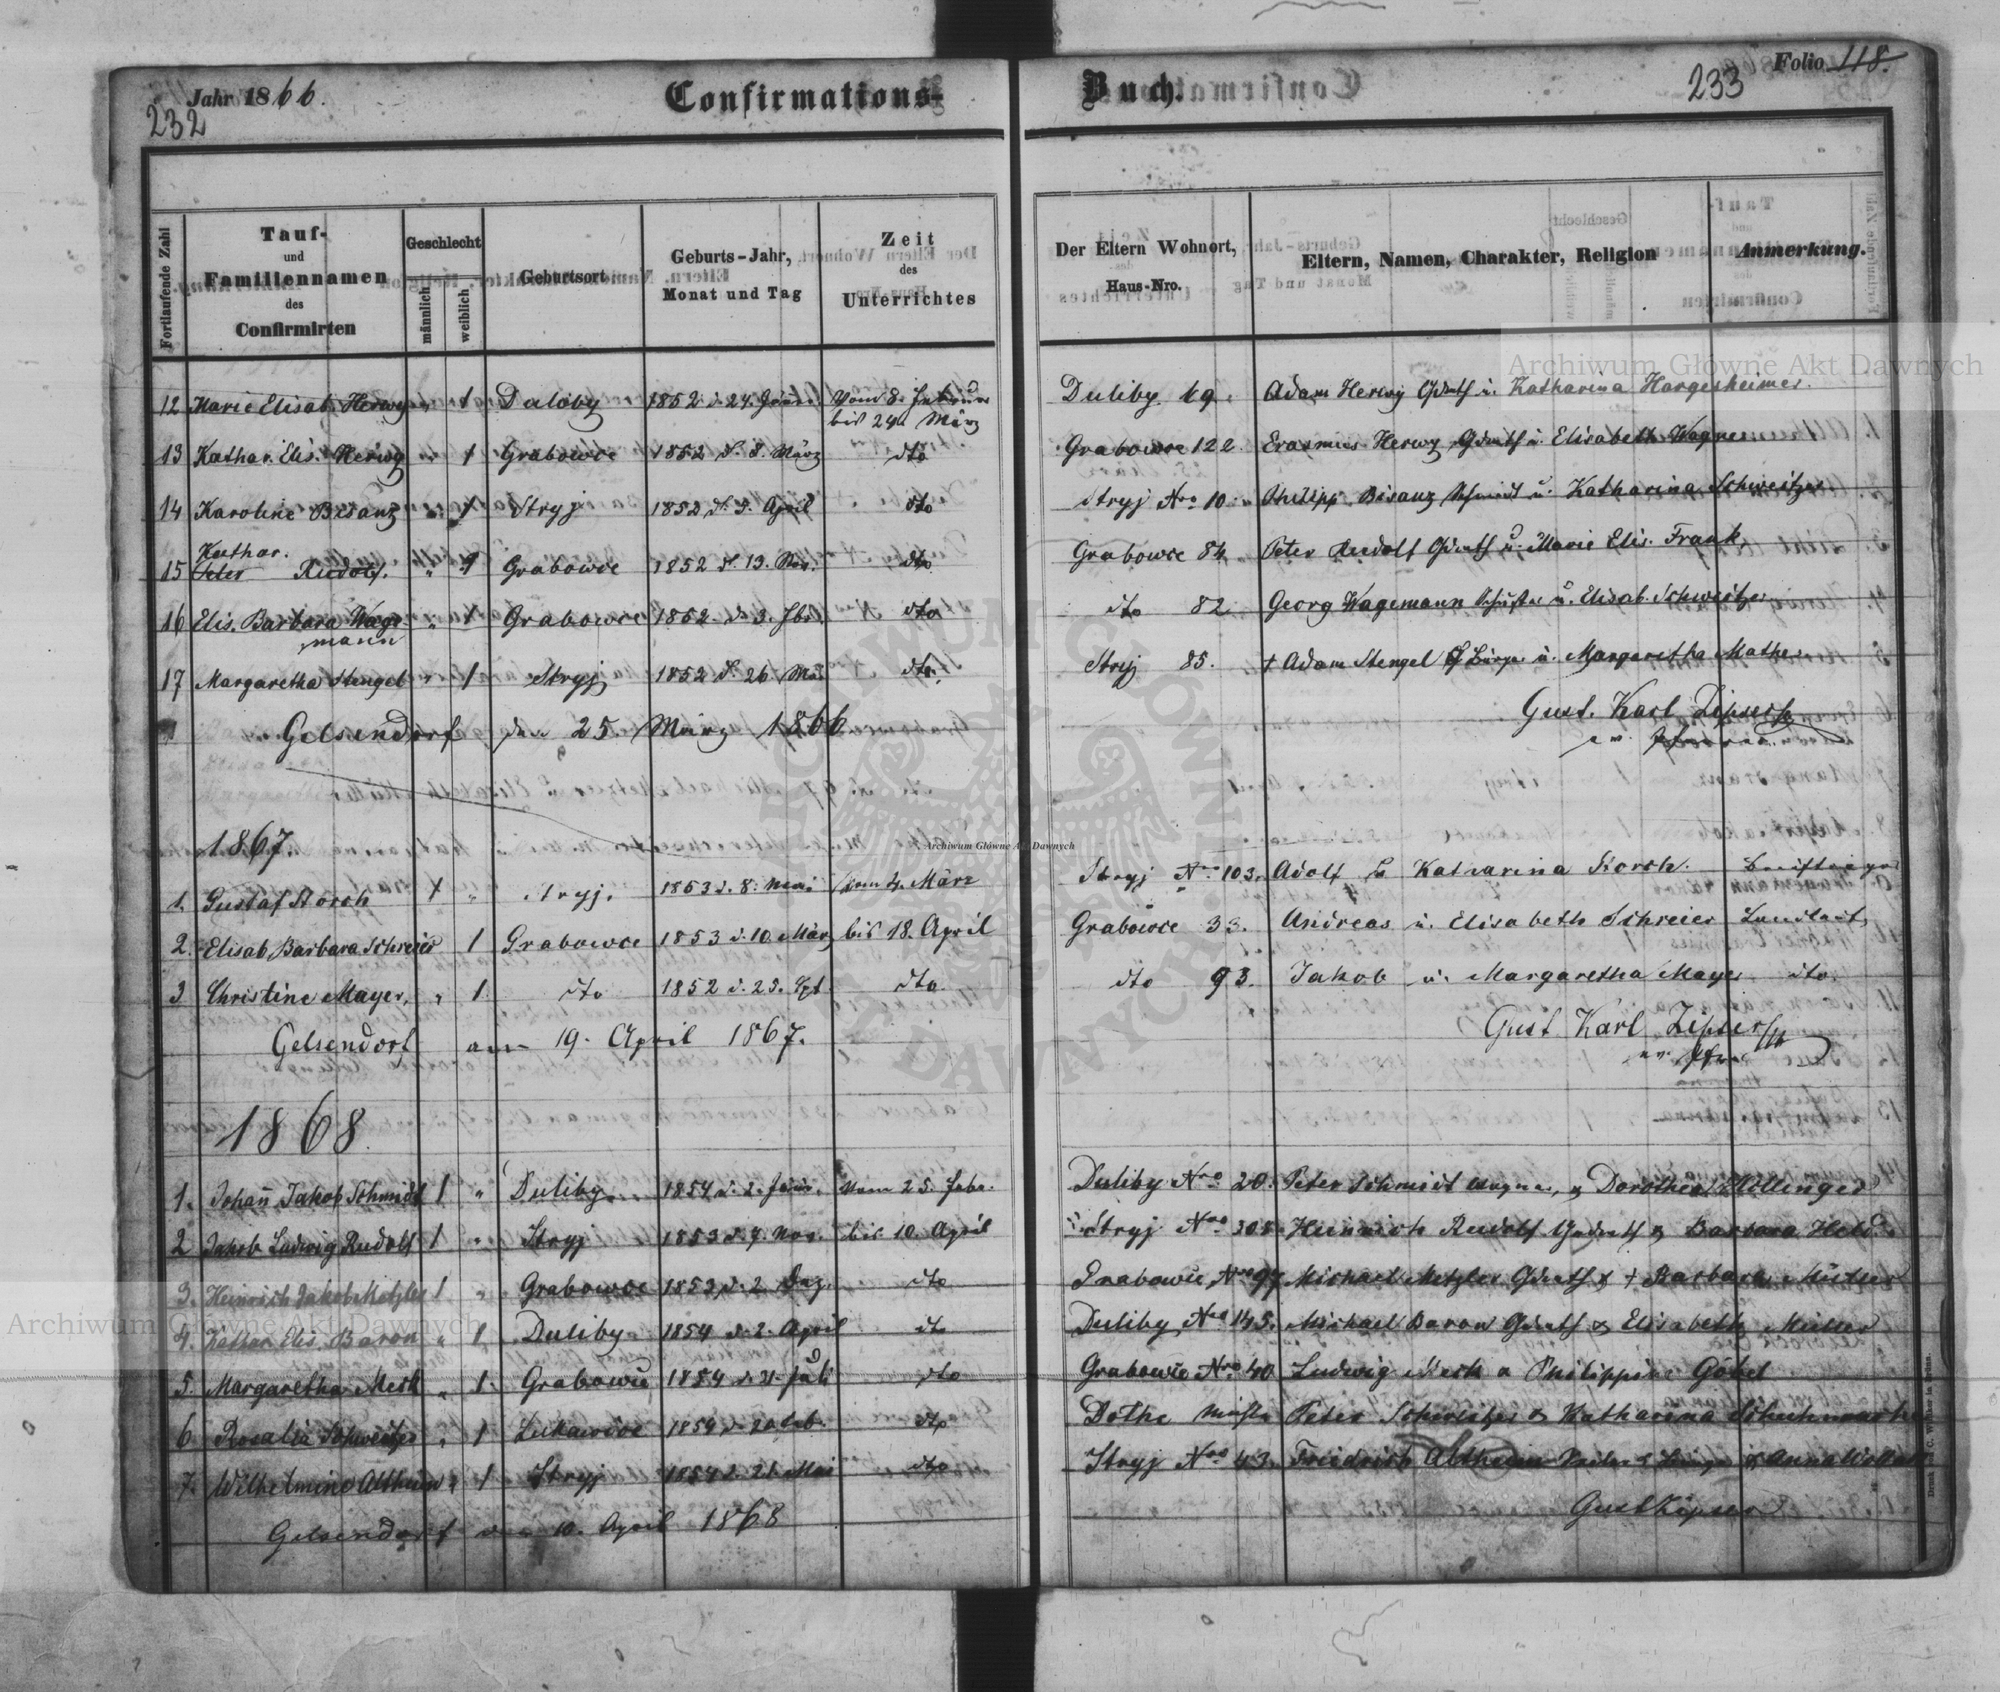 Jahr 1866.
232
Confirmations-
Buch.
233
Folio 118.
Fortlaufende Zahl
Tauf-
und
Familiennamen
des
Confirmirten
Geschlecht
männlich
weiblich
Geburtsort
Geburts-Jahr,
Monat und Tag
Zeit
des
Unterrichtes
Der Eltern Wohnort,
Haus-Nro.
Eltern, Namen, Charakter, Religion
Anmerkung.
12 Marie Elisab. Herwy " 1 Daloby 1852 d. 24. Jän. Vom 8. Februar Duliby 19. Adam Herwy u. Katharina Hargesheimer.
bis 24 März
13 Kathar. Elis. Herwy " 1 Grabowce 1852 d. 8. März dto Grabowce 122 Erasmus Herwy u. Elisabeth Wagner
14 Karoline Bisanz " 1 Stryj 1852 d. 5. April dto Stryj Nro 10. Philipp Bisanz Schmidt u. Katharina Schweitzer
Kathar.
15 Peter Rudolf. " 1 Grabowce 1852 d. 13. dto Grabowce 84 Peter Rudolf u. Marie Elis. Frank
16 Elis. Barbara Wage- " 1 Grabowce 1852 d. 3. dto dto 82 Georg Wagemann u. Elisab. Schweitzer
mann
17 Margaretha Stengel " 1 Stryj 1852 d. 26. dto. Stryj 85. † Adam Stengel u. Margaretha Mathes
Gelsendorf den 25. März 1866
Gust. Karl Zipser
ev. Pfarrer.
1867.
1. Gustaf Storch 1 " Stryj. 1853 d. 8. Mai vom 4. März Stryj Nro 103. Adolf u. Katharina Storch.
2. Elisab. Barbara Schreier 1 Grabowce 1853 d. 10. März bis 18. April Grabowce 33. Andreas u. Elisabeth Schreier
3 Christine Mayer, " 1 dto 1852 d. 23. dto dto 93. Jakob u. Margaretha Mayer dto.
Gelsendorf am 19. April 1867.
Gust Karl Zipser
ev. Pfarrer
1868.
1. Johañ Jakob Schmidt 1 " Duliby 1854 d. 2. Jän. vom 25. Febr. Duliby Nro 20. Peter Schmidt Wagner, & Dorothea Ettinger
2 Jakob Ludwig Rudolf 1 " Stryj 1853 d. 7. Nov. bis 10. April Stryj Nro 305. Heinrich Rudolf & Barbara Held
3. Heinrich Jakob Metzler 1 " Grabowce 1853 d. 2. Dez. dto Grabowce Nro 97 Michael Metzler & † Barbara Müller
4. Kathar. Elis. Baron " 1 Duliby 1854 d. 2. April dto Duliby Nro 145. Michael Baron & Elisabeth Müller
5. Margaretha Merk " 1. Grabowce 1854 d. 31. Juli dto Grabowce Nro 40 Ludwig Merk & Philippine Göbel
6 Rosalia Schweitzer " 1 1854 d. 20 Feb. dto Peter Schweitzer & Katharina Schuhmacher
7. Wilhelmine Altheim " 1 Stryj 1854 d. 21. Mai dto Stryj Nro 43. Friedrich Altheim & Anna
Gelsendorf den 10. April 1868
Gust Zipser
Archiwum Główne Akt Dawnych
Archiwum Główne Akt Dawnych
Archiwum Główne Akt Dawnych
ARCHIWUM GŁÓWNE AKT DAWNYCH